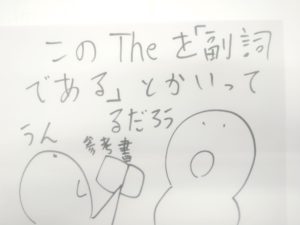 このTheを「副詞
である」とかいって
るだろう
うん
参考書